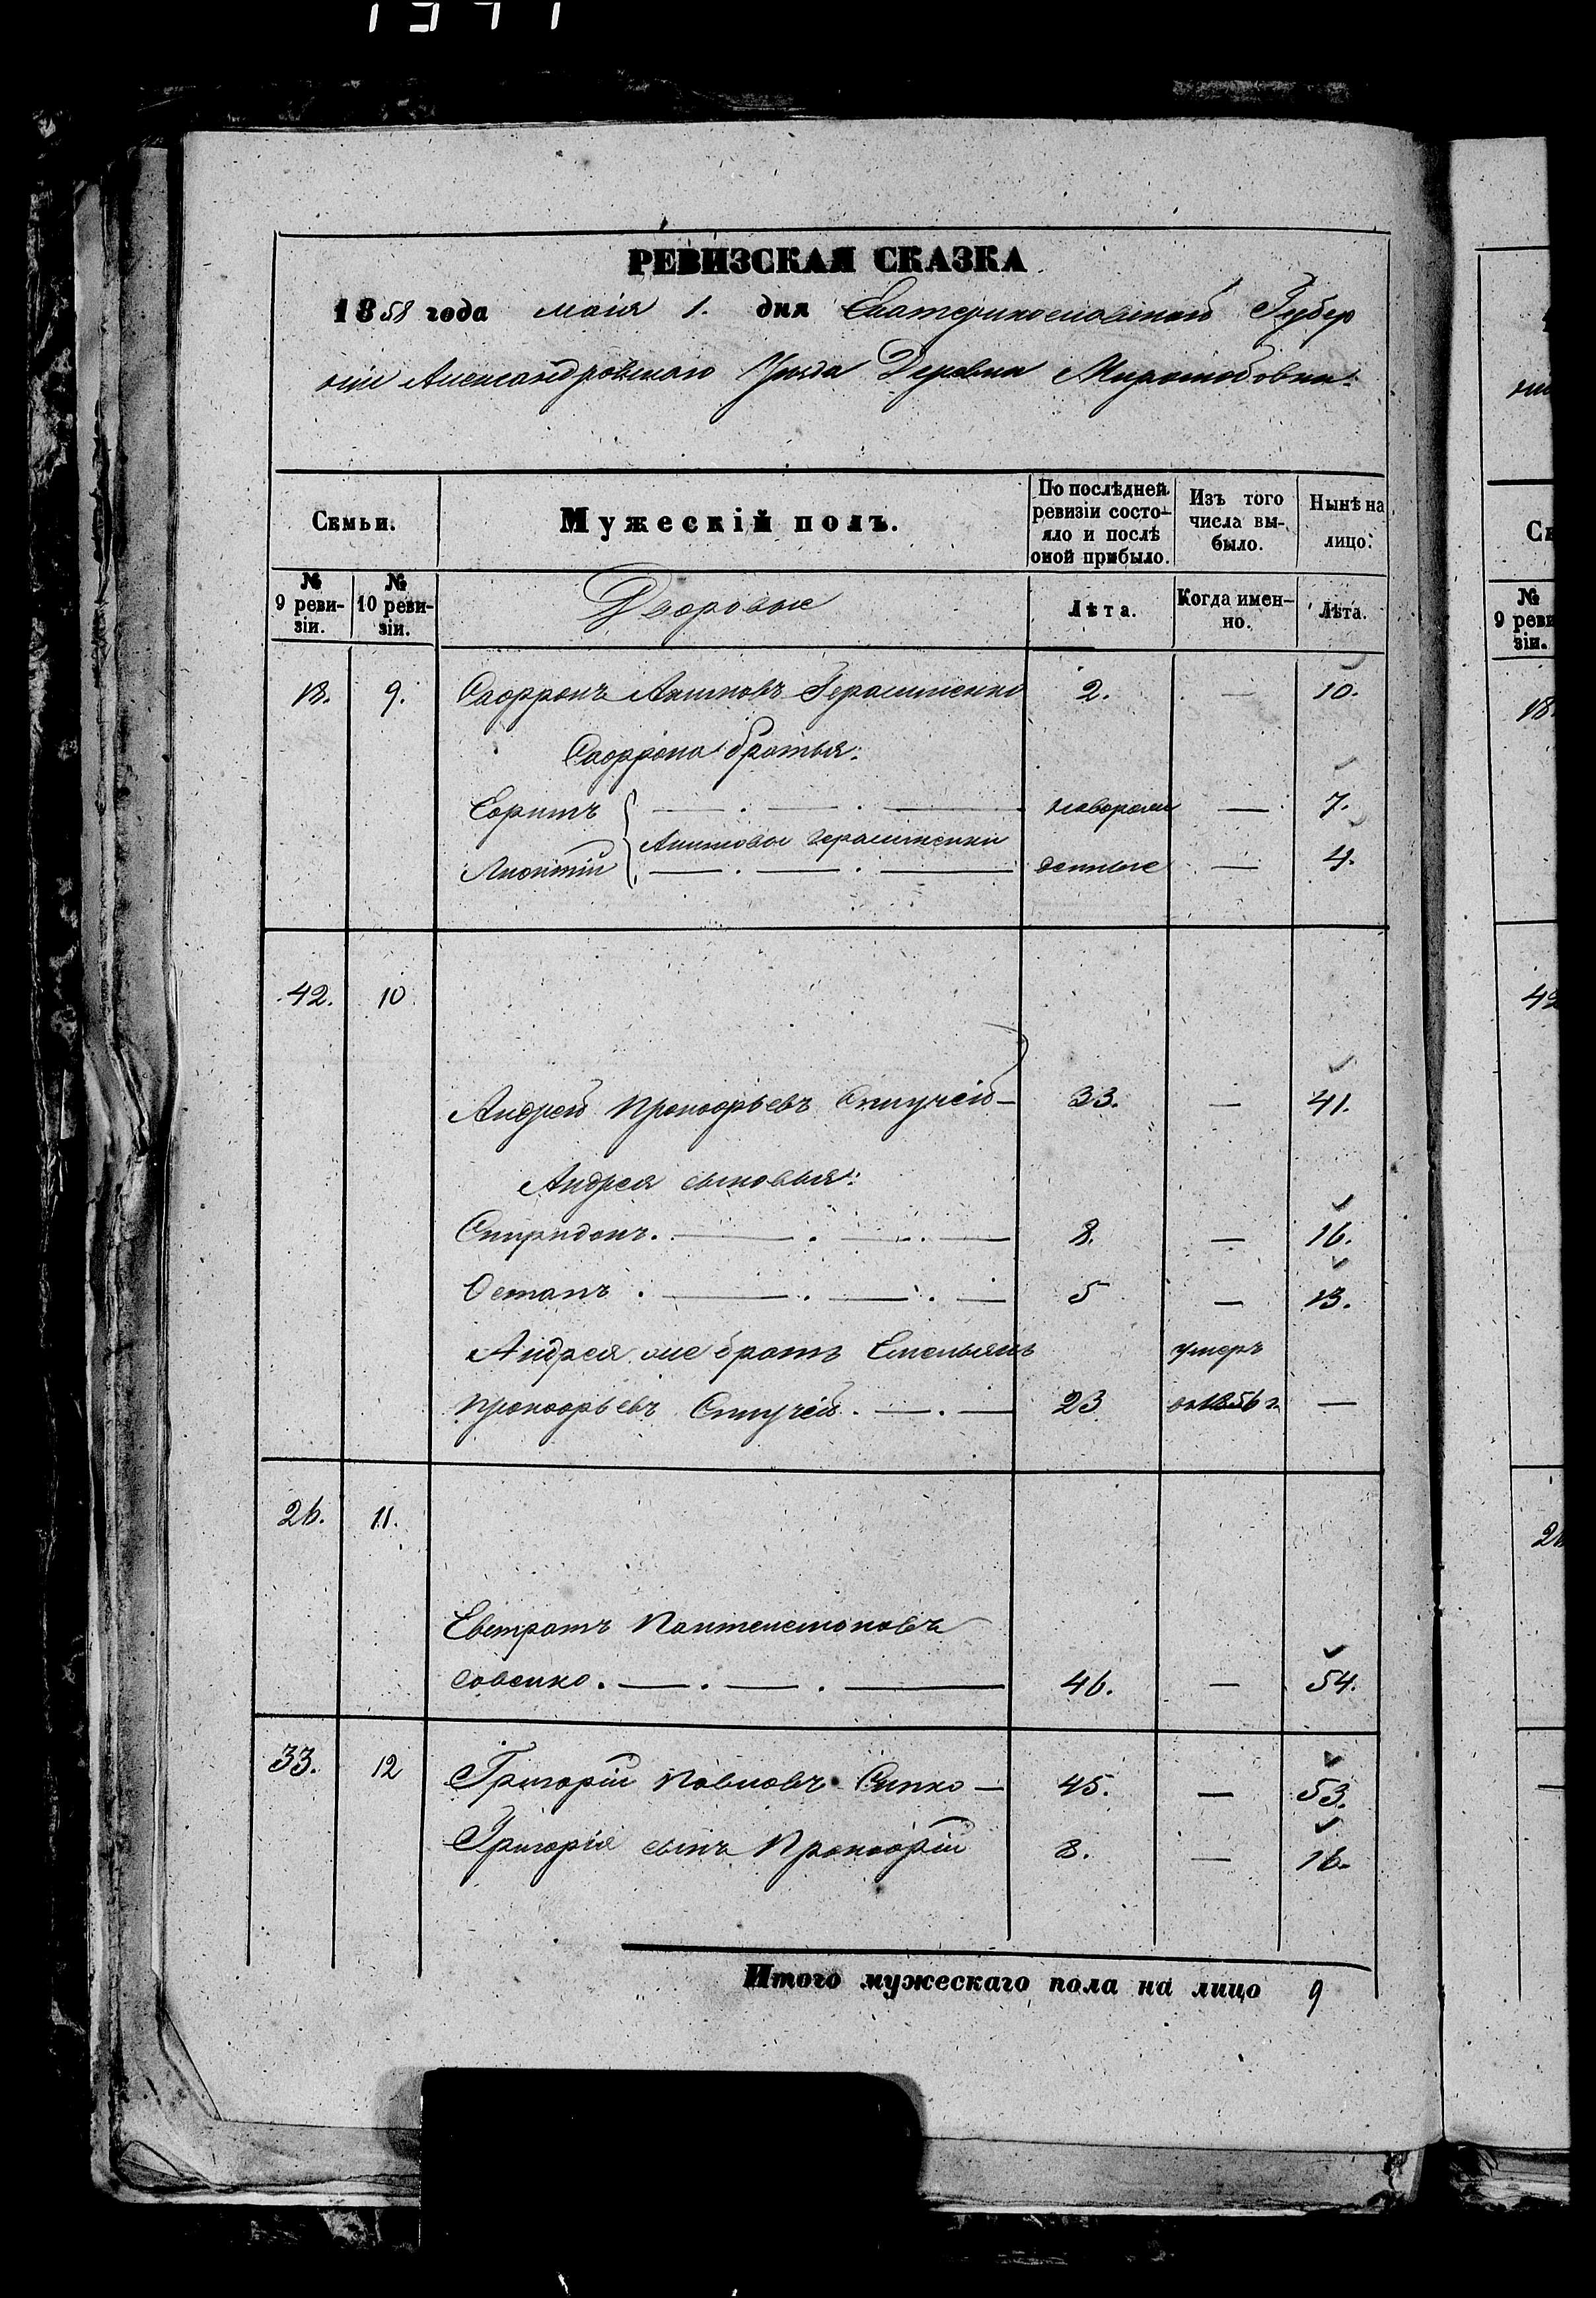 РЕВИЗСКАЯ СКАЗКА
1858 года маія 1. дня Екатеринославской Губер
ніи Александровскаго Уезда Деревни Миролюбовки.
Семьи. Мужескій полъ. По послѣдней ревизіи состо- яло и послѣ оной прибыло. Изъ того числа вы- было. Нынѣ на лицо.
№ 9 реви- зіи. № 10 реви- зіи. Дворовые Лѣта. Когда имен- но. Лѣта.
18. 9. Софронъ Акимовъ Герасименко 2. — 10.
Софрона братья:
Ефимъ — . — . — новорож — 7.
Акимовы Герасименки
Леонтій — . — . — денные — 4.
42. 10.
Андрей Прокофьевъ — 33. — 41.
Андрея сыновья:
Спиридонъ. — . — . — 8. — 16.
Остапъ . — . — . — 5 — 13.
Андрея же братъ Емельянъ умеръ
Прокофьевъ . — . — 23 въ 1856 г. —
26. 11.
Евстратъ Пантелемоновъ
Совенко . — . — . — 46. — 54.
33. 12 Григорій Павловъ — 45. — 53.
Григорія сынъ Прокофій 8. — 16.
Итого мужескаго пола на лицо 9
№
9 реви
зіи.
18
42
26